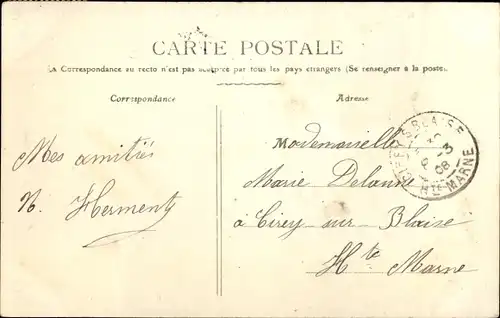 CARTE POSTALE
La Correspondance au recto n'est pas acceptée par tous les pays étrangers (Se renseigner à la poste)
Correspondance
Adresse
Mes amitiés
N. Herment
Mademoiselle
Marie Delanne
à Cirey sur Blaise
Hte Marne
CIREY-S-BLAISE
6 -3
08
HTE-MARNE